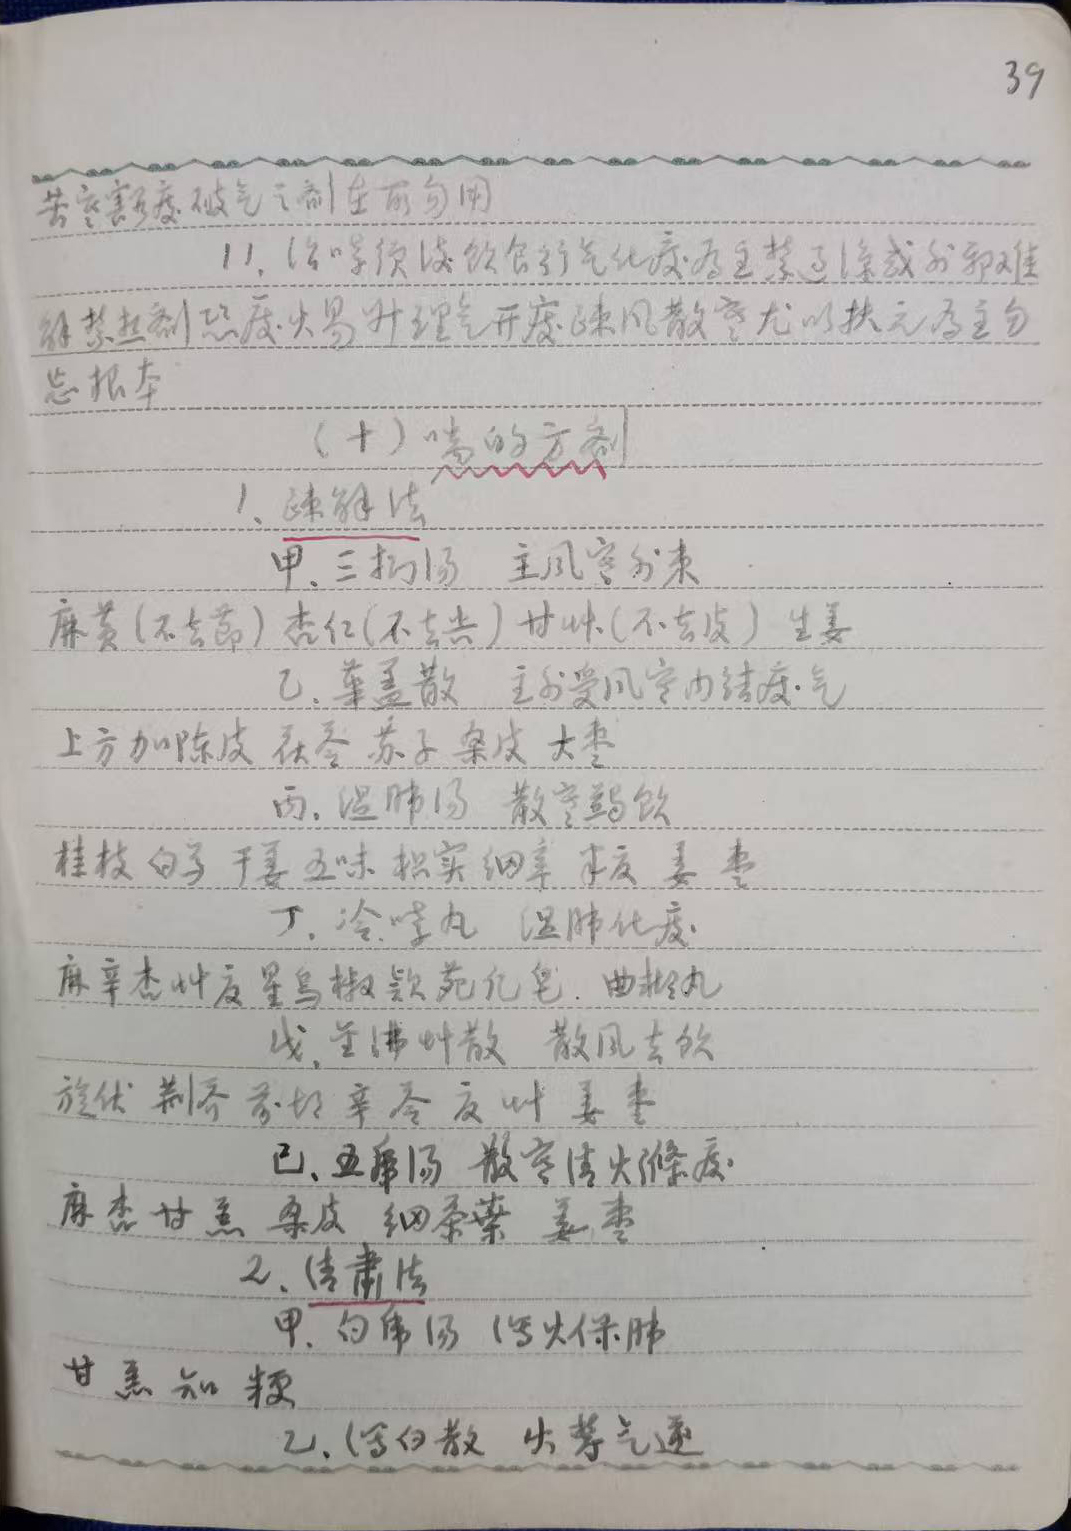 39
苦寒割痰破气之剂在所勿用
11、治哮须淡饮食行气化痰为主禁过凉哉外邪难
解禁热剂恐痰火易升理气开痰疎风散寒尤以扶元为主勿
忘根本
（十）喘的方剂
1、疎解法
甲、三拗汤 主风寒外束
麻黄(不去节) 杏仁(不去尖) 甘艸(不去皮) 生姜
乙、華盖散 主外受风寒内结痰气
上方加陈皮 茯苓 苏子 桑皮 大枣
丙、温肺汤 散寒蠲饮
桂枝 白芍 干姜 五味 枳实 细辛 半夏 姜 枣
丁、冷哮丸 温肺化痰
麻辛杏艸夏星乌椒 苑 皂 曲 丸
戊、金沸艸散 散风去饮
旋伏 荆芥 前胡 辛 苓 夏 艸 姜 枣
己、五虎汤 散寒清火滌痰
麻杏甘羔 桑皮 细茶葉 姜 枣
2、清肅法
甲、白虎汤 泻火保肺
甘 羔 知 粳
乙、泻白散 火 气逆